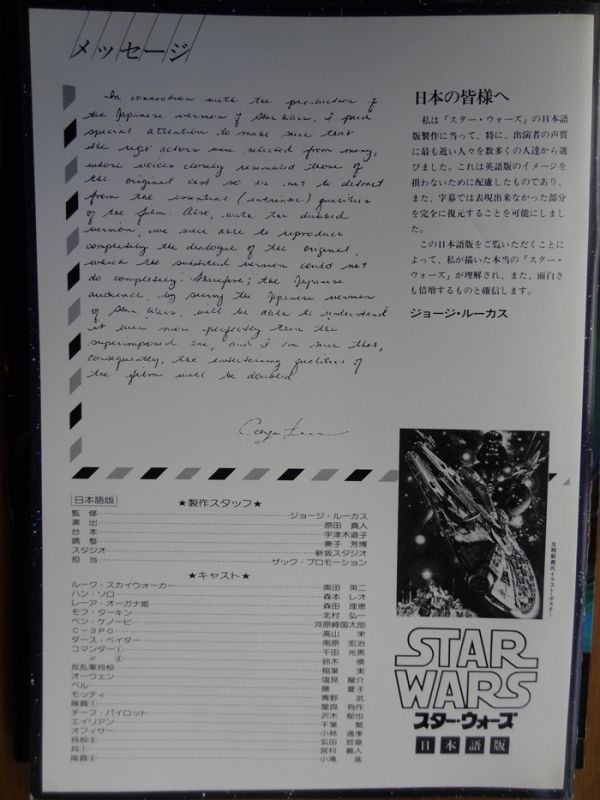 メッセージ
In connection with the production of
the Japanese version of Star Wars, I paid
special attention to make sure that
the right actors were selected from many,
whose voices closely resembled those of
the original cast so as not to detract
from the essential (intrinsic) qualities
of the film. Also, with the dubbed
version, we were able to reproduce
completely the dialogue of the original,
which the subtitled version could not
do completely. Therefore, the Japanese
audience, by seeing the Japanese version
of Star Wars, will be able to understand
it even more perfectly than the
superimposed one, and I am sure that,
consequently, the entertaining qualities of
the film will be doubled
日本の皆様へ
私は「スター・ウォーズ」の日本語
版製作に当って、特に、出演者の声質
に最も近い人々を数多くの人達から選
びました。これは英語版のイメージを
損わないために配慮したものであり、
また、字幕では表現出来なかった部分
を完全に復元することを可能にしまし
た。
この日本語版をご覧いただくことに
よって、私が描いた本当の「スター・
ウォーズ」が理解され、また、面白さ
も倍増するものと確信します。
ジョージ・ルーカス
日本語版
★製作スタッフ★
監修 ジョージ・ルーカス
演出 原田 眞人
台本 宇津木道子
調整 兼子 芳博
スタジオ 新坂スタジオ
担当 ザック・プロモーション
★キャスト★
ルーク・スカイウォーカー 奥田 英二
ハン・ソロ 森本 レオ
レーア・オーガナ姫 森田 理恵
モフ・ターキン 北村 弘一
ベン・ケノービ 河原崎国太郎
C-3PO 高山 栄
ダース・ベイダー 南原 宏治
コマンダー① 千田 光男
〃 ② 鈴木 慎
反乱軍将校 稲葉 実
オーウェン 塩見 龍介
ベル 藤 夏子
モッティ 青野 武
隊員① 屋良 有作
チーフ・パイロット 沢木 郁也
エイリアン 千葉 繁
オフィサー 小林 通孝
将校② 玄田 哲章
兵① 宮村 義人
隊員② 小滝 進
生頼範義氏イラスト・ポスター
STAR
WARS
スター・ウォーズ
日本語版